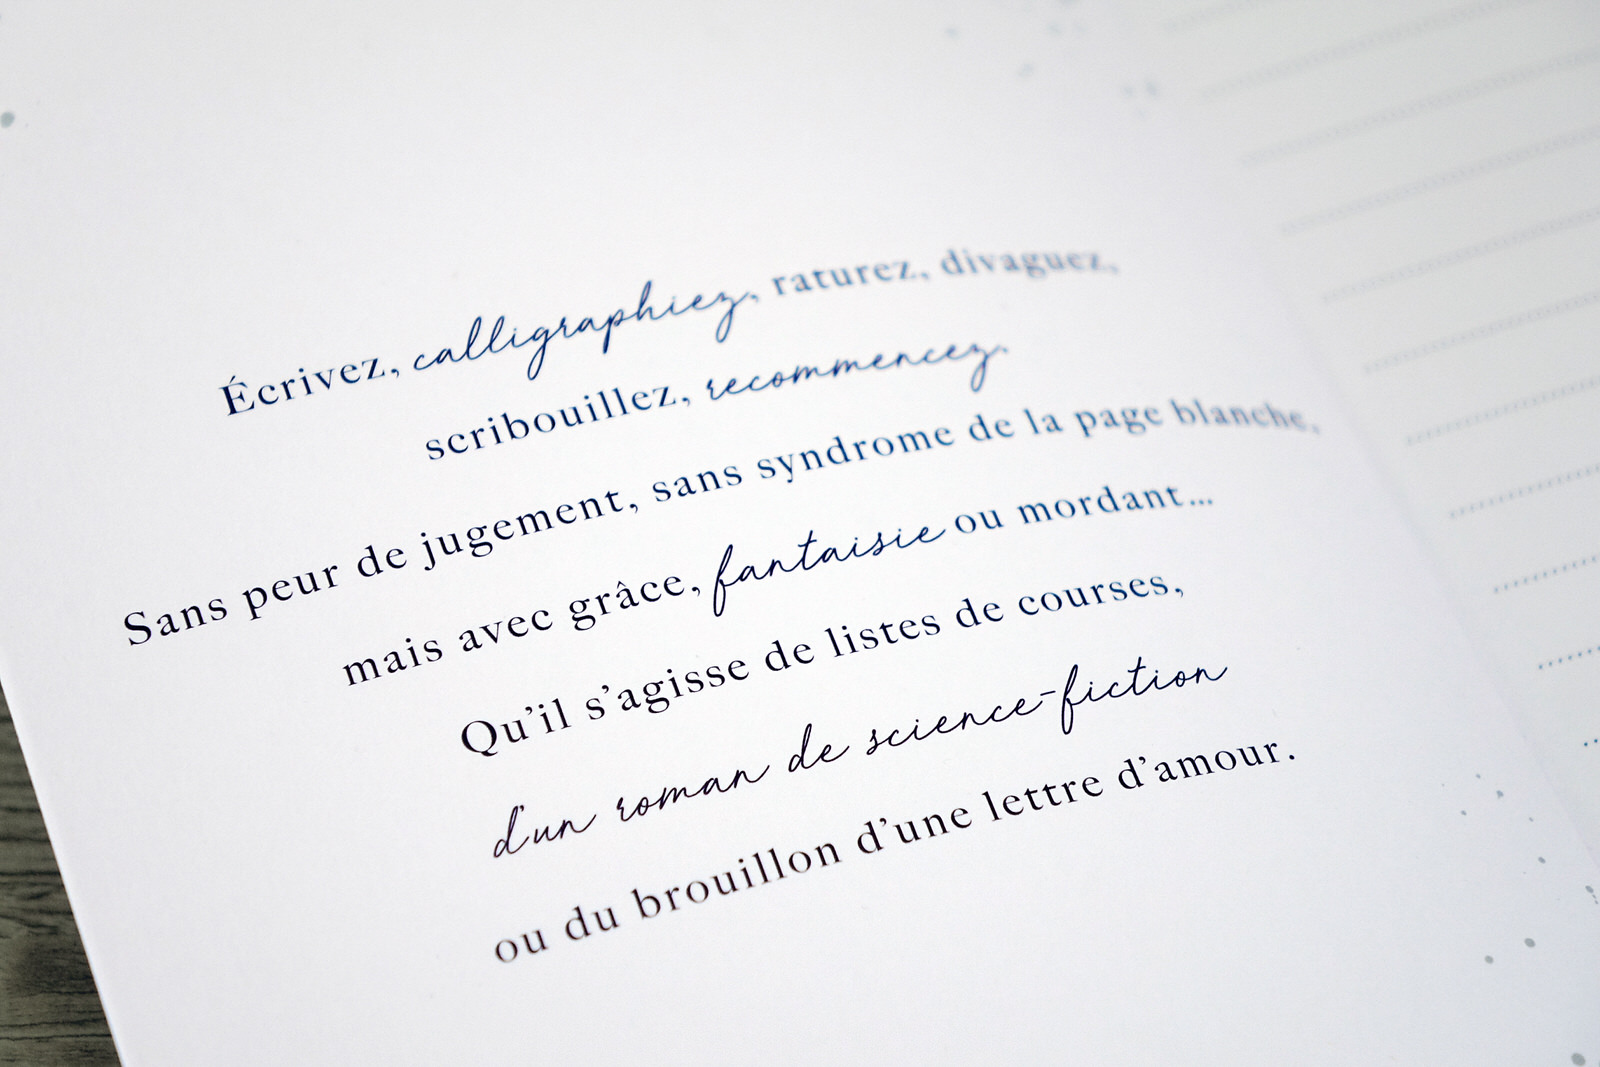 Écrivez, calligraphiez, raturez, divaguez,
scribouillez, recommencez.
Sans peur de jugement, sans syndrome de la page blanche,
mais avec grâce, fantaisie ou mordant...
Qu’il s’agisse de listes de courses,
d’un roman de science-fiction
ou du brouillon d’une lettre d’amour.